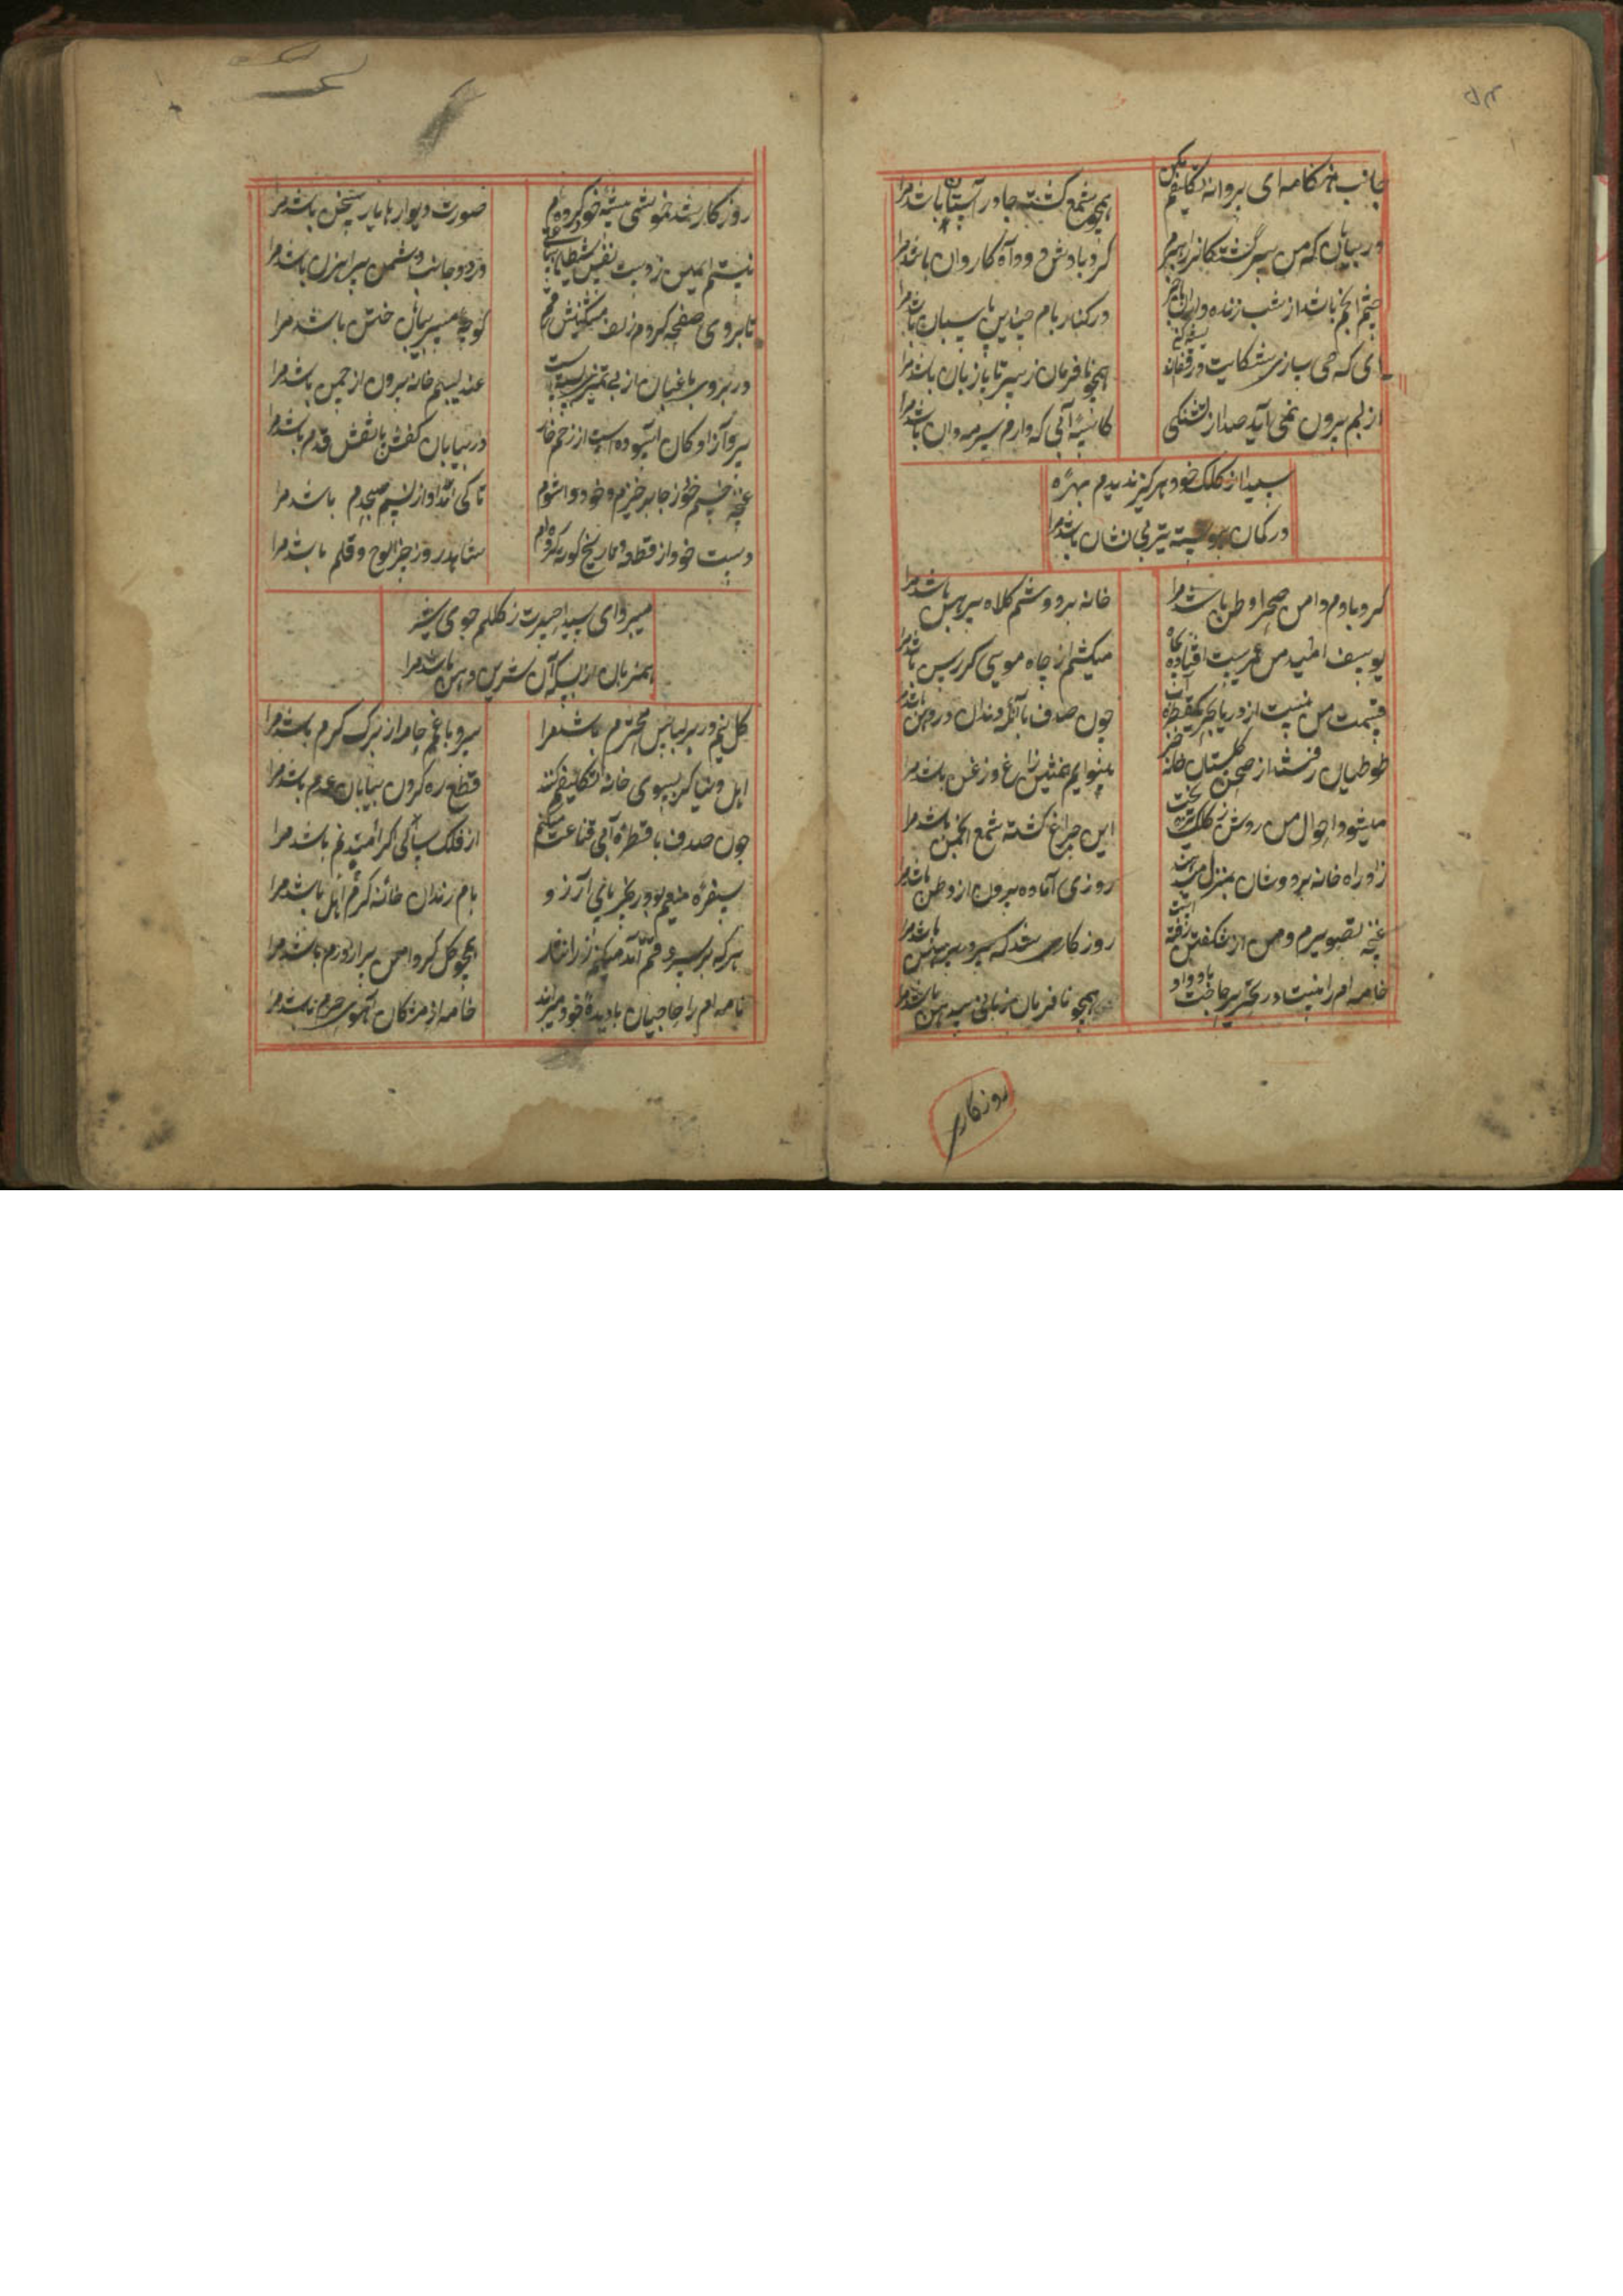 جانب هنگامه ای پروانه تکلیفم مکن
همچو شمع کشته جا در آستان باشد مرا
در بیابان که من سرگشتگانرا رهبرم
گردباد ش دود آه کاروان باشد مرا
چشم انجم باشد از شب زنده
در کنار بام پاسبان باشد مرا
ای که می سازی شکایت در قفا
همچو نافرمان ز سر تا پا زبان باشد مرا
از لبم بیرون نمی آید صدا از تشنگی
کاسه آبی که دارم سرمه دان باشد مرا
سیدا از کلک خود هرگز ندیدم بهره
در کمان پیوسته تیر بی نشان باشد مرا
گردبادم دامن صحرا وطن باشد مرا
خانه بر دوشم کلاه پیرهن باشد مرا
یوسف امید من عمریست افتاده بچاه
میکشم از چاه موسی گر رسن باشد مرا
قسمت من نیست از دریا بجز یکقطره آب
چون صدف با آنکه دندان در دهن باشد مرا
طوطیان رفتند از صحن گلستان
بینوایم همنشین زاغ و زغن باشد مرا
میشود احوال من روشن ز کلک تیره بخت
این چراغ کشته شمع انجمن باشد مرا
زاد راه خانه بر دوشان بمنزل میرسد
روزی آماده بیرون از وطن باشد مرا
غنچه تصویرم و من از شکفتن رفته است
روزگاری شد که سر در پیرهن باشد مرا
خامه ام را نیست در تحریر حاجت با دوات
همچو نافرمان زبانی در دهن باشد مرا
روزگاری
روزگاری شد خموشی پیشه خو کرده ام
صورت دیوارها یار سخن باشد مرا
نیستم ایمن ز دست نفس شیطان
در دو جانب دشمن پیراهن باشد مرا
تا بروی صفحه کردم زلف مشکینش رقم
کوچه مسیر بیابان ختن باشد مرا
در بروی باغبان از بی تمیزی بسته است
عندلیبم خانه بیرون از چمن باشد مرا
سرو آزادگان آسوده است از زخم خار
در بیابان کفش پا نقش قدم باشد مرا
غنچه خسبم خود ز جا برخیزم و خود وا شوم
تا کی امداد از نسیم صبحدم باشد مرا
دست خود از قطعه تاریخ کوته کرده ام
شاهد روز جزا لوح و قلم باشد مرا
میرود ای سیدا حیرت ز کلکم جوی شیر
همزبان از بسکه آن شیرین دهن باشد مرا
گل نیم در بر لباس محترم باشد مرا
سرو باغم جامه از برگ کرم باشد مرا
اهل دنیا گر بسوی خانه تکلیفم کنند
قطع ره کردن بیابان عدم باشد مرا
چون صدف با قطره آبی قناعت میکنم
از فلک باکی اگر امید نم باشد مرا
سفره منعم بود دریای آرزو
بام زندان خانه اهل کرم باشد مرا
هرکه بر سر وقتم آمد میکنم زر را نثار
همچو گل گر دامن پر از درم باشد مرا
نامه ام را حاجیان با دیده خود میبرند
خامه از مژگان آهوی حرم باشد مرا